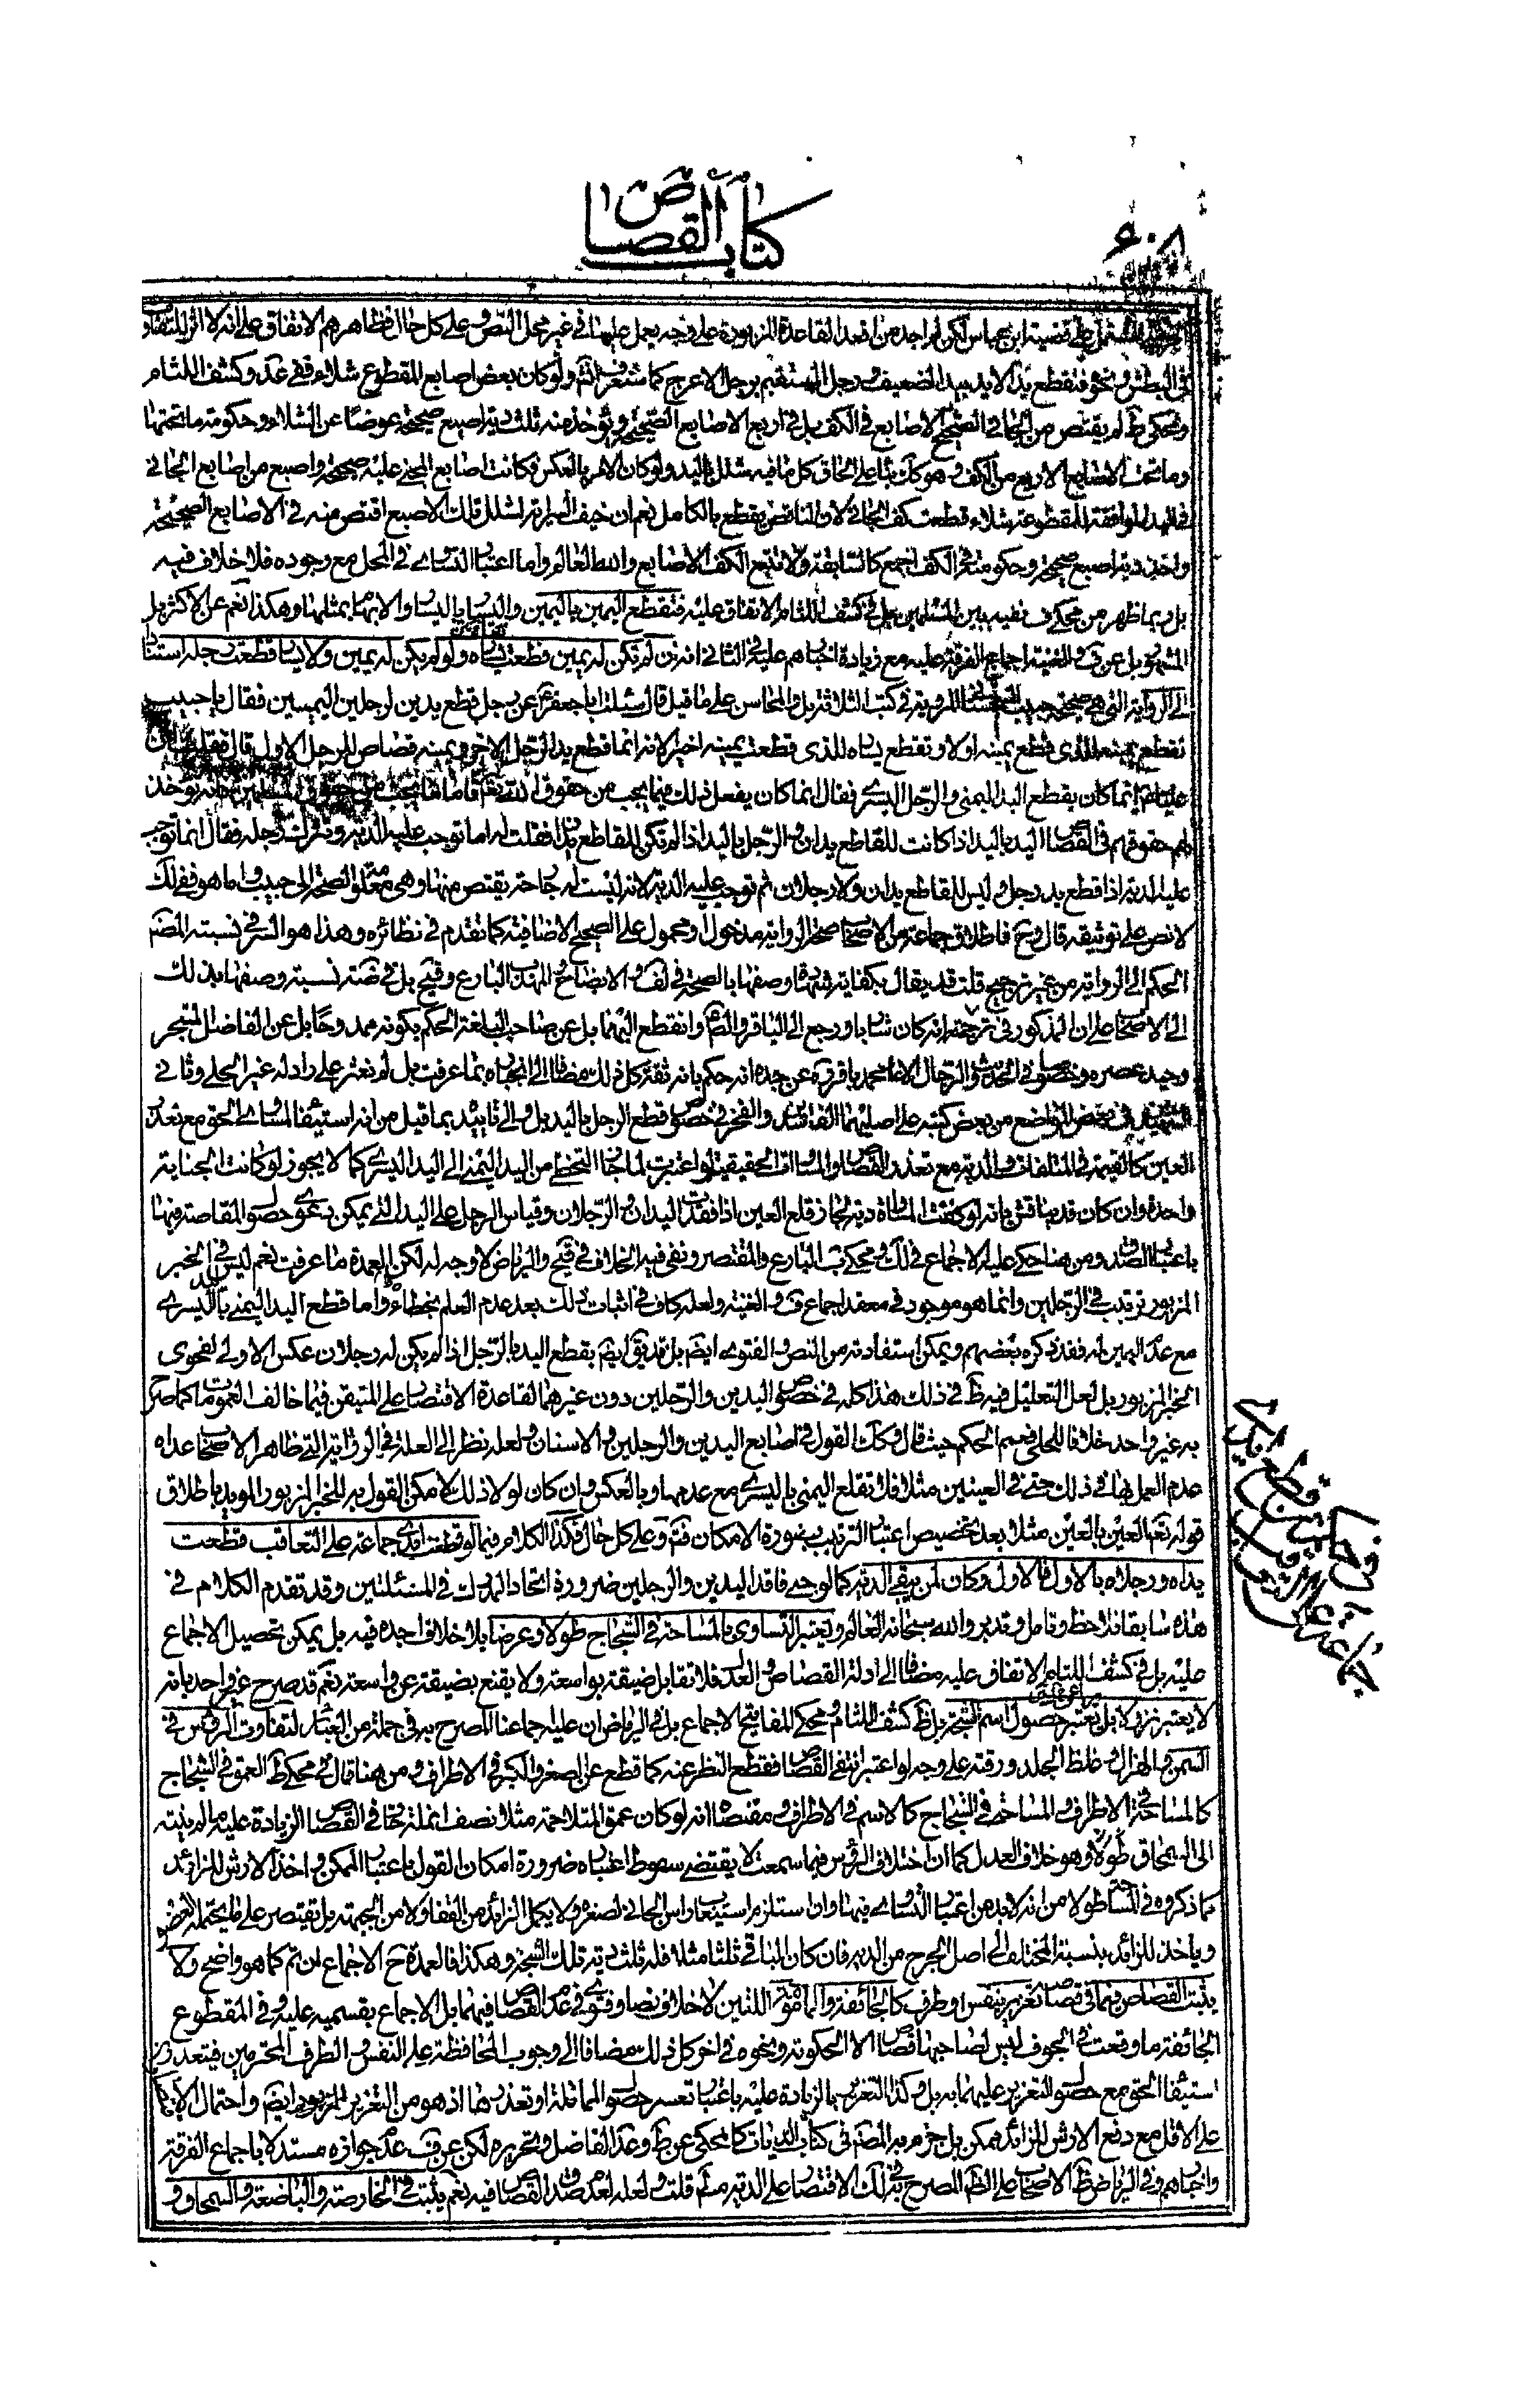 ٦٠٨
كتاب القصاص
على قضية ابن عباس لكن لم اجد من اقعد القاعدة المزبورة على وجه يعمل عليها في غير محل النص وعلى كل حال فظاهرهم الاتفاق على انه لا اثر للتفاوت
في البطش ونحوه فتقطع يد الايد بيد الضعيف ورجل المستقيم برجل الاعرج كما ستعرف انش ولو كان بعض اصابع المقطوع شلاء ففي عد وكشف اللثام
ومحكي ط لم يقتص من الجاني الصحيح الاصابع في الكف بل في اربع الاصابع الصحيحة ويؤخذ منه ثلث دية اصبع صحيحة عوضا عن الشلاء وحكومة ما تحتها
وما تحت الاصابع الاربع من الكف وهو كك بناء على الحاق كل ما فيه شلل باليد ولو كان الامر بالعكس وكانت اصابع المجني عليه صحيحة واصبع من اصابع الجاني
في اليد الموافقة للمقطوعة شلاء قطعت كف الجاني لان الناقص يقطع بالكامل نعم ان خيف السراية لشلل تلك الاصبع اقتص منه في الاصابع الصحيحة
واخذ دية اصبع صحيحة وحكومة الكف اجمع كالسابقة ولا تتبع الكف الاصابع والله العالم واما اعتبار التساوي في المحل مع وجوده فلا خلاف فيه
بل ربما ظهر من محكي ف نفيه بين المسلمين بل في كشف اللثام الاتفاق عليه فتقطع اليمين باليمين واليسار باليسار والابهام بمثلها وهكذا نعم عن الاكثر بل
المشهور بل عن ف والغنية اجماع الفرقة عليه مع زيادة اخبارهم عليه في الثاني انه ان لم تكن له يمين قطعت يساره ولو لم يكن له يمين ولا يسار قطعت رجله استنادا
الى الرواية التي هي صحيحة حبيب السجستاني المروية في كتب الثلاثة بل والمحاسن على ما قيل قال سئلت ابا جعفر ع عن رجل قطع يدين لرجلين اليمينين فقال يا حبيب
تقطع يمينه للذي قطع يمينه اولا وتقطع يساره للذي قطعت يمينه اخيرا لانه انما قطع يد الرجل الاخير ويمينه قصاص للرجل الاول قال فقلت ان
عليا ع انما كان يقطع اليد اليمنى والرجل اليسرى فقال انما كان يفعل ذلك فيما يجب من حقوق الله تعم فاما ما يجب من حقوق المسلمين فانه يؤخذ
لهم حقوقهم في القصاص اليد باليد اذا كانت للقاطع يدان والرجل باليد اذا لم تكن للقاطع يدان فقلت له اما توجب عليه الدية وتترك رجله فقال انما توجب
عليه الدية اذا قطع يد رجل وليس للقاطع يدان ولا رجلان ثم توجب عليه الدية لانه ليست له جارحة يقتص منها وهي معلومة الصحة الى حبيب واما هو ففي لك
لا نص على توثيقه قال وح فاطلاق جماعة من الاصحاب صحة الرواية مدخول او محمول على الصحة الاضافية كما تقدم في نظائره وهذا هو السر في نسبة المصنف
الحكم الى الرواية من غير ترجيح قلت قد يقال بكفاية شهادة وصفها بالصحة في لف والايضاح والمهذب البارع وقيح بل في ضة نسبة وصفها بذلك
الى الاصحاب على ان المذكور في ترجمته انه كان شاريا ورجع الى الباقر والص ع وانقطع اليهما بل عن صاحب البلغة الحكم بكونه ممدوحا بل عن الفاضل المتبحر
وحيد عصره وخصوصا في الحديث والرجال الاغا محمد باقر ره عن جده انه حكم بانه ثقة كل ذلك مضافا الى انجباره بما عرفت بل لم نعثر على راد له غير الحلي وثاني
الشهيدين في بعض المواضع من بعض كتبه على اصليهما الفاسدين والفخر في خصوص قطع الرجل باليد بل والى تاييده بما قيل من انه استيفاء المساوي للحق مع تعذر
العين كالقيمة في المتلفات والدية مع تعذر القصاص والمساواة الحقيقية لو اعتبرت لما جاز التخطي من اليد اليمنى الى اليد اليسرى كما لا يجوز لو كانت الجناية
واحدة وان كان قد يناقش بانه لو كفت المساواة دية لجاز قلع العين اذا فقدت اليدان والرجلان وقياس الرجل على اليد الذي يمكن بدعوى حصول المقاصة فيها
باعتبار الصدق ومن هنا حكي عليه الاجماع في لك ومحكي ب البارع والمقتصر ونفى فيه الخلاف في قيح والرياض لا وجه له لكن العمدة ما عرفت نعم ليس في الخبر
المزبور ترتيب في الرجلين وانما هو موجود في معقد اجماع ف والغنية ولعله كاف في اثبات ذلك بعد عدم العلم بخطائه واما قطع اليد اليمنى باليد اليسرى
مع عدم اليمين له فقد ذكره بعضهم ويمكن استفادته من النص والفتوى ايضم بل قد يق ايضم بقطع اليد بالرجل اذا لم يكن له رجلان عكس الاولى لفحوى
الخبر المزبور بل لعل التعليل فيه ظ في ذلك هذا كله في خصوص اليدين والرجلين دون غيرهما لقاعدة الاقتصار على المتيقن فيما خالف العمومات كما صرح
به غير واحد خلافا للحلي فعمم الحكم حيث قال وكك القول في اصابع اليدين والرجلين والاسنان ولعله نظر الى العلة في الرواية التي ظاهر الاصحاب عداه
عدم العمل بها في ذلك حتى في العينين مثلا فلا تقلع اليمنى باليسرى مع عدمها وبالعكس وان كان لولا ذلك لامكن القول به للخبر المزبور المؤيد باطلاق
قوله تعم العين بالعين مثلا بعد تخصيص اعتبار الترتيب بصورة الامكان فتم وعلى كل حال فكذا الكلام فيما لو قطعت ايدي جماعة على التعاقب قطعت
يداه ورجلاه بالاول فالاول وكان لمن يبقى الدية كما لو جنى فاقد اليدين والرجلين ضرورة اتحاد المدرك في المسئلتين وقد تقدم الكلام في
هذه سابقا فلاحظ وتامل وتدبر والله سبحانه العالم ويعتبر التساوي بالمساحة في الشجاج طولا وعرضا بلا خلاف اجده فيه بل يمكن تحصيل الاجماع
عليه بل في كشف اللثام الاتفاق عليه مضافا الى ادلة القصاص والعدل فلا تقابل ضيقة بواسعة ولا يقنع بضيقة عن واسعة نعم قد صرح غير واحد بانه
لا يعتبر نزولا بل يعتبر حصول اسم الشجة بل ظ كشف اللثام ومحكي المفاتيح الاجماع بل في الرياض ان عليه جماعنا المصرح به في جملة من العبائر لتفاوت الرؤس في
السمن والهزال وغلظ الجلد ورقته على وجه لو اعتبر انتفى القصاص فقطع النظر عنه كما قطع عن الصغر والكبر في الاطراف ومن هنا قال في محكي ط العمق في الشجاج
كالمساحة في الاطراف والمساحة في الشجاج كالاسم في الاطراف ومقتضاه انه لو كان عمق المتلاحمة مثلا نصف انملة جاز في القصاص الزيادة عليه ما لم ينته
الى السمحاق طولا وهو خلاف العدل كما ان اختلاف الرؤس فيما سمعت لا يقتضي سقوط اعتباره ضرورة امكان القول باعتبار الممكن واخذ الارش للزائد
كما ذكروه في المساحة طولا من انه لا بد من اعتبار التساوي فيها وان استلزم استيعاب راس الجاني لصغره ولا يكمل الزائد من القفا ولا من الجبهة بل يقتصر على ما يحتمله العضو
وياخذ للزائد بنسبة المختلف الى اصل الجرح من الدية فان كان الباقي ثلثا مثلا فله ثلث دية تلك الشجة وهكذا فالعمدة ح الاجماع ان تم كما هو واضح ولا
يثبت القصاص فيما في قصاصه تغرير بنفس او طرف كالجائفة والمامومة اللتين لا خلاف نصا وفتوى في عدم القصاص فيهما بل الاجماع بقسميه عليه وفي المقطوع
الجائفة ما وقعت في الجوف ليس لصاحبها قصاص الا الحكومة ونحوه في اخر كل ذلك مضافا الى وجوب المحافظة على النفس والطرف المحترمين فيتعذر
استيفاء الحق مع حصول التغرير عليهما به بل وكذا التغرير بالزيادة عليه باعتبار تعسر حصول المماثلة او تعذرها اذ هو من التغرير المزبور ايضم واحتمال الاتيان
على الاقل مع دفع الارش للزائد ممكن بل جزم به المصنف في كتاب الديات كالمحكي عن ط وعد الفاضل وتحريره لكن عن ف عدم جوازه مستدلا باجماع الفرقة
واخبارهم وفي الرياض ظ الاصحاب على الظ المصرح في لك الاقتصار على الدية ثم قلت ولعله لعدم صدق القصاص فيه نعم يثبت في الخارصة والباضعة والسمحاق و
في حكم من قطع ايدي
جماعة على التعاقب